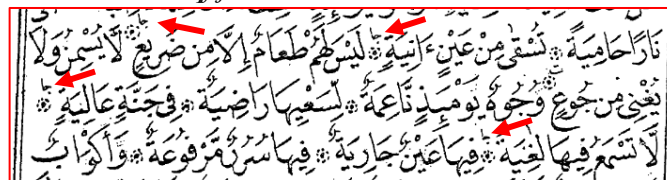 نَارًا حَامِيَةً ۞ تُسْقَىٰ مِنْ عَيْنٍ ءَانِيَةٍ ۞ لَّيْسَ لَهُمْ طَعَامٌ إِلَّا مِن ضَرِيعٍ ۞ لَّا يُسْمِنُ وَلَا
يُغْنِي مِن جُوعٍ ۞ وُجُوهٌ يَوْمَئِذٍ نَّاعِمَةٌ ۞ لِّسَعْيِهَا رَاضِيَةٌ ۞ فِي جَنَّةٍ عَالِيَةٍ ۞
لَّا تَسْمَعُ فِيهَا لَٰغِيَةً ۞ فِيهَا عَيْنٌ جَارِيَةٌ ۞ فِيهَا سُرُرٌ مَّرْفُوعَةٌ ۞ وَأَكْوَابٌ